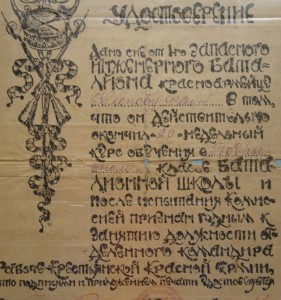 УДОСТОВЕРЕНИЕ
Дано сие от 1го Запасного
Инженерного Бата-
лиона красноармейцу
в том,
что он действительно
окончил 20-недельный
курс обучения в
классе Бата-
лионной школы и
после испытания комис-
сией признан годным к
занятию должности от-
деленного командира
Рабоче-Крестьянской Красной Армии,
что подписями и приложением печати удостоверяется